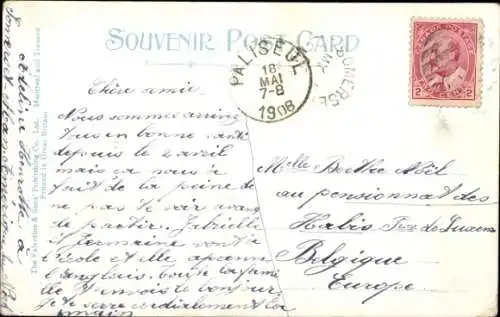 SOUVENIR POST CARD
PALISEUL
18
MAI
7-8
1908
SOMERSE
CANADA POSTAGE
2 2
Chère amie
Nous sommes arrivé
tus en bonne santé
depuis le 2 avril
mais ça nous a
fait de la peine de
ne pas te voir avant
de partir. Gabrielle
et Germaine vont a
l'école et elle aprenne
l'anglais. toute la fame
vous envois le bonjour
Je te serre cordialement la
main
Melle Berthe Abil
au pensionnat des
Habis Luxem
Belgique
Europe
The Valentine & Sons' Publishing Co., Ltd. Montreal and Toronto
Printed in Great Britain